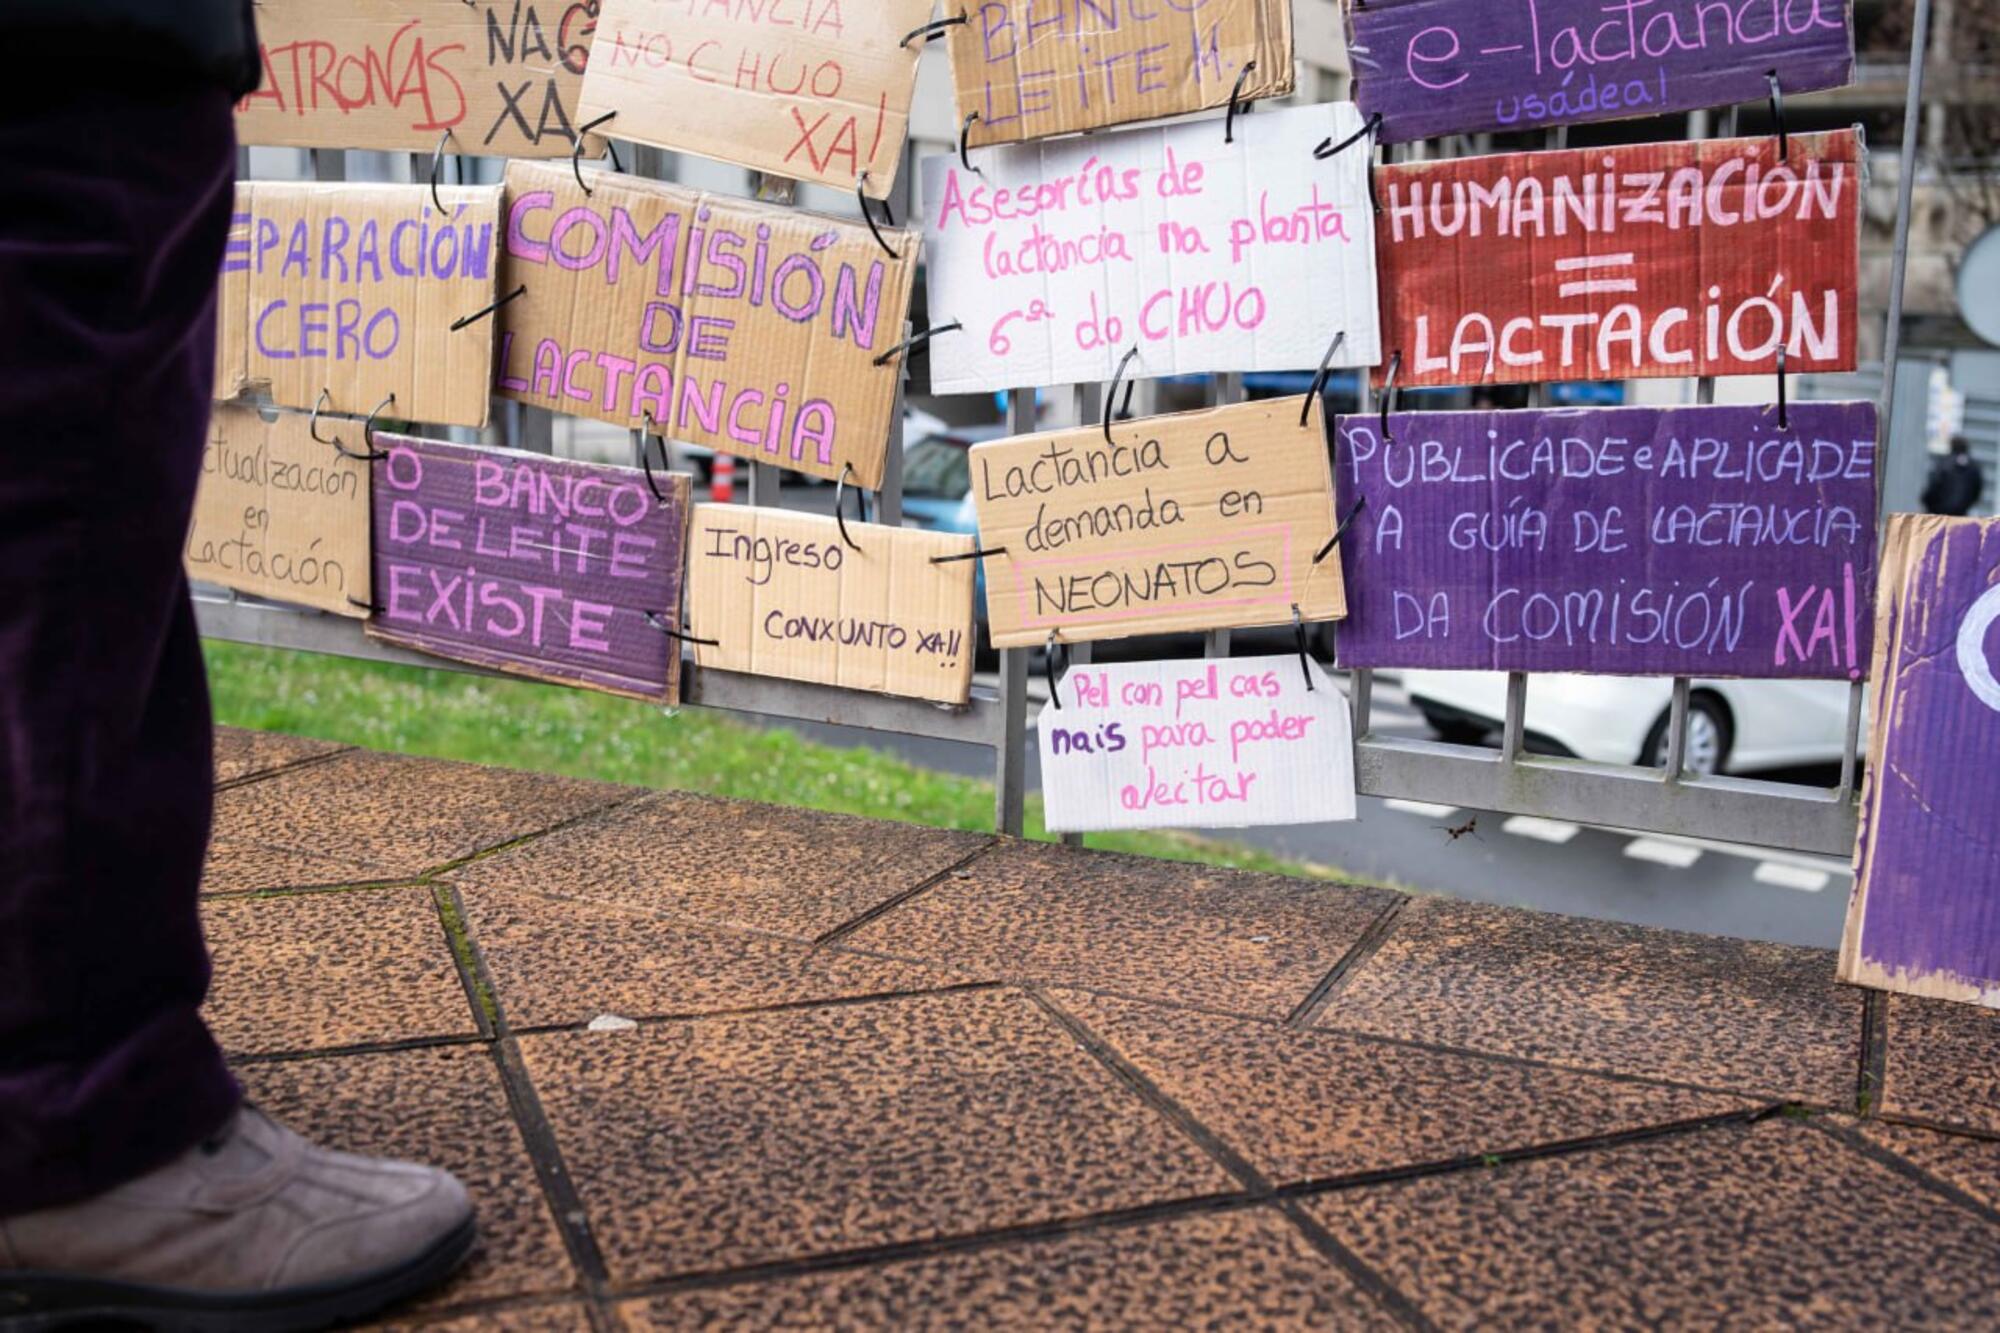 NA 6ª
XA
NO CHUO
XA!
BANCO
LEITE H.
e-lactancia
usádea!
CERO
COMISIÓN
DE
LACTANCIA
Asesorías de
lactancia na planta
6ª do CHUO
HUMANIZACIÓN
=
LACTACIÓN
en
Lactación
O BANCO
DE LEITE
EXISTE
Ingreso
CONXUNTO XA!!
Lactancia a
demanda en
NEONATOS
PUBLICADE e APLICADE
A GUÍA DE LACTANCIA
DA COMISIÓN XA!
Pel con pel cas
nais para poder
aleitar